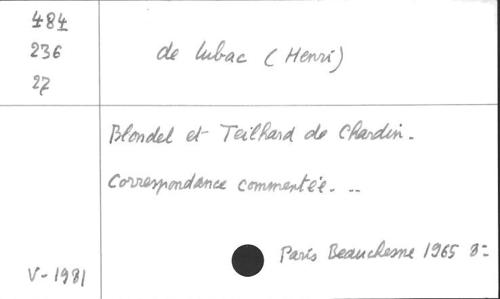 484
236
27
de Lubac (Henri)
Blondel et Teilhard de Chardin.
Correspondance commentée. ..
Paris Beauchesne 1965 8=
V-1981